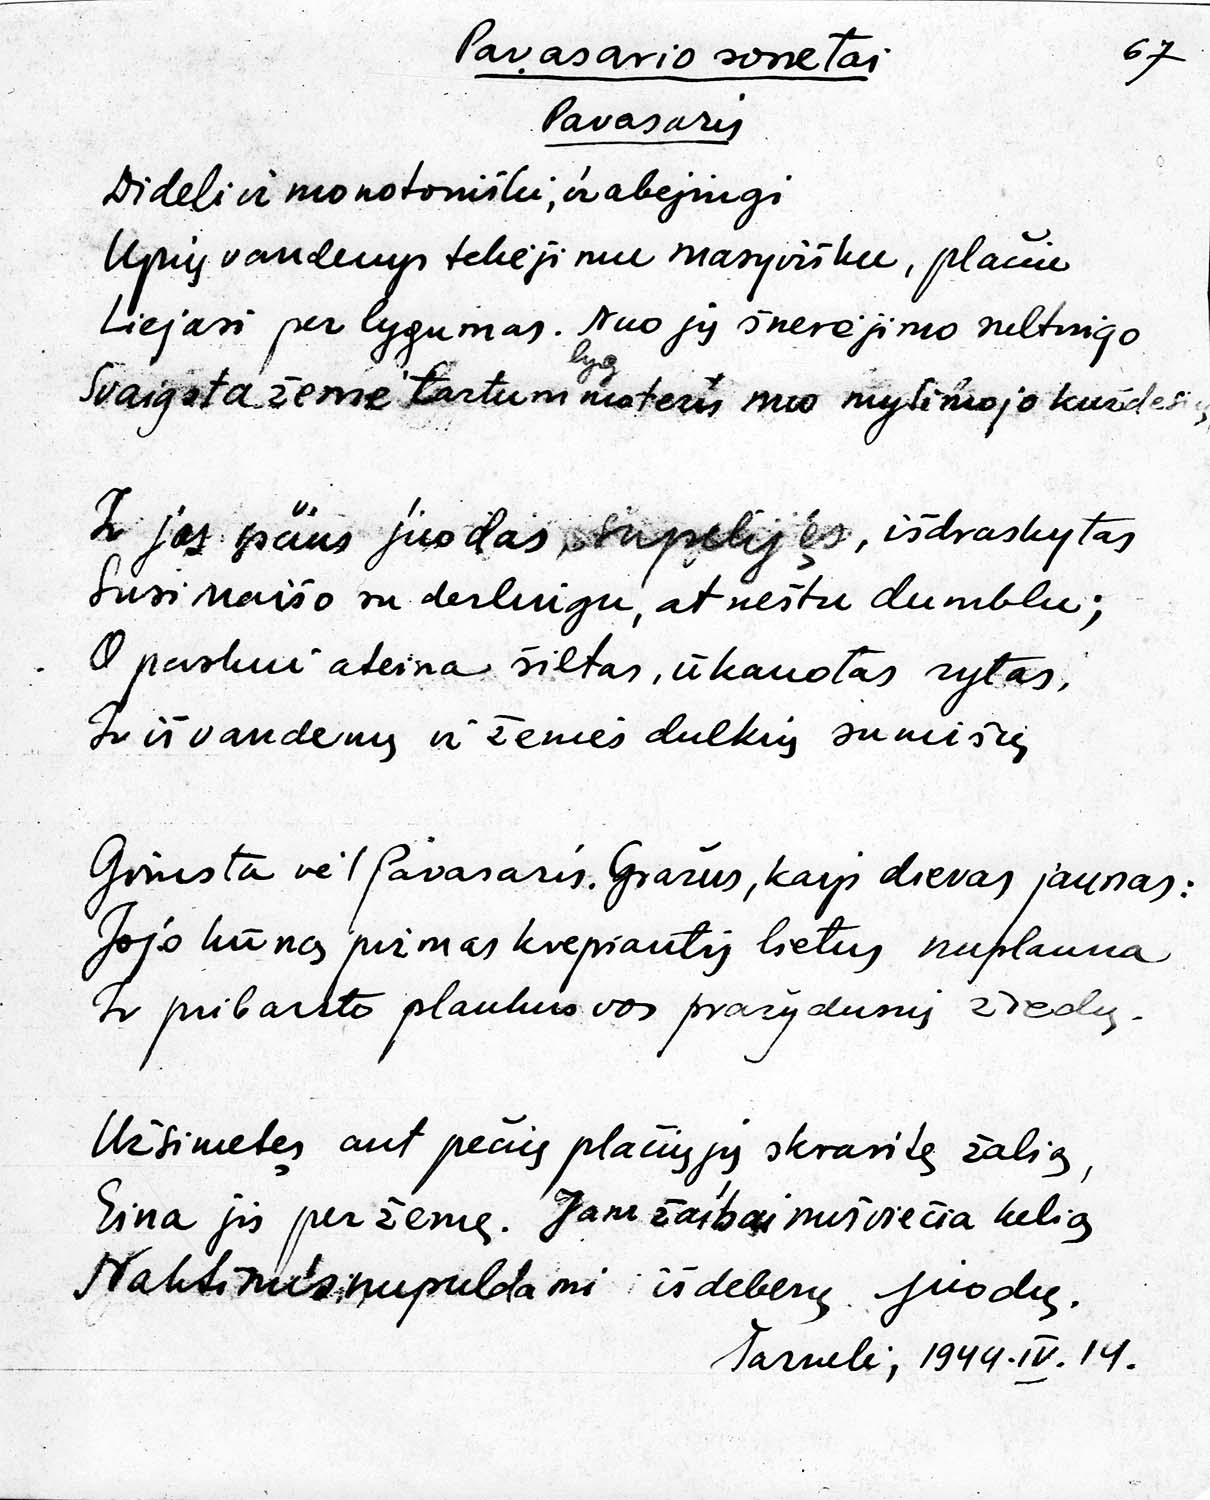 Pavasario sonetai
67
Pavasaris
Dideli ir monotoniški, ir abejingi
Upių vandenys tekėjimu masyvišku, plačiu
Liejasi per lygumas. Nuo jų šnerėjimo
lyg
Svaigsta žemė tartum moteris nuo mylimojo kuždesių,
Ir jos juodas supelijęs, išdraskytas
Susimaišo su derlingu, atneštu dumblu;
O paskui ateina šiltas, ūkanotas rytas,
Ir iš vandenų ir žemės dulkių sumišų
Gimsta vėl Pavasaris. Gražus, kaip dievas jaunas:
Jojo kūną pirmas kvepiantis lietus nuplauna
Ir pribarsto plaukus vos pražydusių žiedų.
Užsimetęs ant pečių plačiųjų skraistę žalią,
Eina jis per žemę. Jam žaibai nušviečia kelią
Naktimis, nupuldami iš debesų juodų.
1944.IV.14.